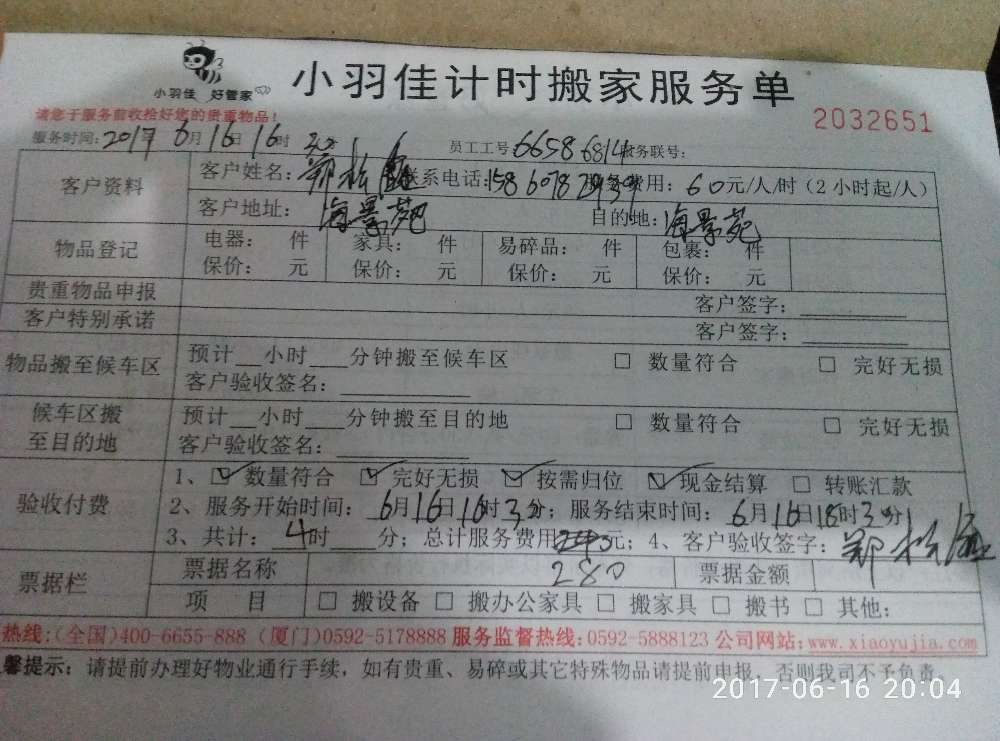 小羽佳 好管家
小羽佳计时搬家服务单
2032651
请您于服务前收拾好您的贵重物品！
服务时间：2017 6月16日16时30分 员工工号：6658 6814 服务联号：
客户资料 客户姓名：郑松 联系电话：158 6078 费用：60元/人/时（2小时起/人）
客户地址：海景苑 目的地：海景苑
物品登记 电器： 件 家具： 件 易碎品： 件 包裹： 件
保价： 元 保价： 元 保价： 元 保价： 元
贵重物品申报 客户签字：
客户特别承诺 客户签字：
物品搬至候车区 预计__小时___分钟搬至候车区 □ 数量符合 □ 完好无损
客户验收签名：
候车区搬至目的地 预计__小时___分钟搬至目的地 □ 数量符合 □ 完好无损
客户验收签名：
验收付费 1、☑ 数量符合 ☑ 完好无损 ☑ 按需归位 ☑ 现金结算 □ 转账汇款
2、服务开始时间：6月16日16时3分；服务结束时间：6月16日18时3分；
3、共计：4时___分；总计服务费用 元；4、客户验收签字：郑松
280
票据栏 票据名称 票据金额
项 目 □ 搬设备 □ 搬办公家具 □ 搬家具 □ 搬书 □ 其他：
热线：(全国)400-6655-888 (厦门)0592-5178888 服务监督热线：0592-5888123 公司网站：www.xiaoyujia.com
馨提示：请提前办理好物业通行手续，如有贵重、易碎或其它特殊物品请提前申报，否则我司不予负责。
2017-06-16 20:04